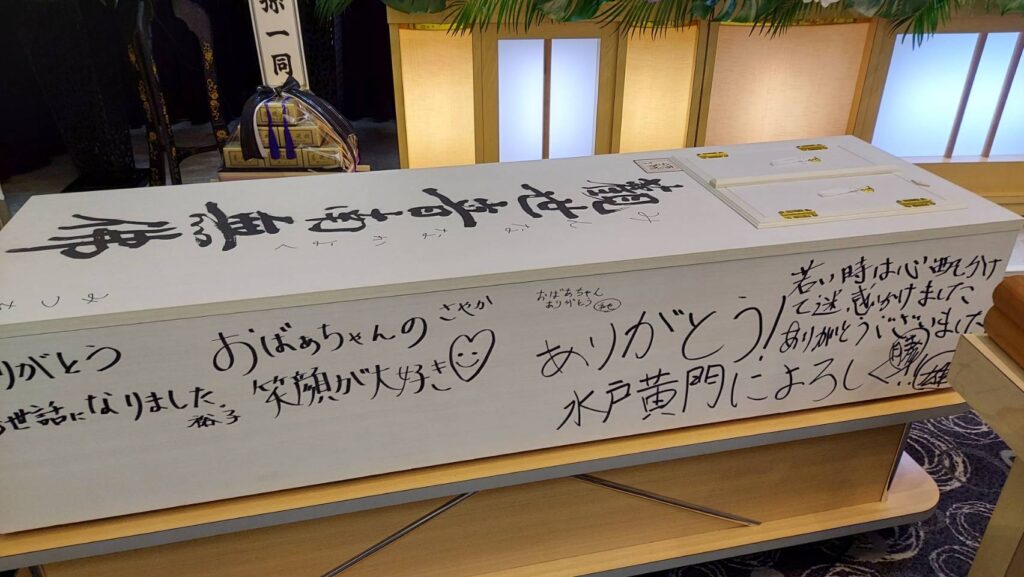 孫一同
觀世音南無佛
りがとう
世話になりました。
裕子
おばぁちゃんの
笑顔が大好き
さやか
おばあちゃん
ありがとう
ありがとう!
水戸黄門によろしく!!
若い時は心配かけ
て迷惑かけました
ありがとうございました
勝
雄